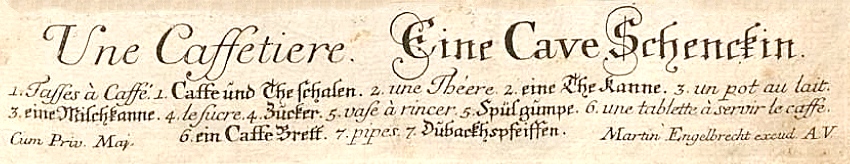 Une Caffetiere. Eine Cave Schenckin.
1. Tasses à Caffé. 1. Caffe und The schalen. 2. une Théere. 2. eine The Kanne. 3. un pot au lait.
3. eine Milchkanne. 4. le sucre. 4. Zucker. 5. vase à rincer. 5. Spülgumpe. 6. une tablette à servir le caffé.
Cum Priv. Maj. 6. ein Caffe Brett. 7. pipes. 7. Dübackhspfeiffen. Martin Engelbrecht excud. A.V.